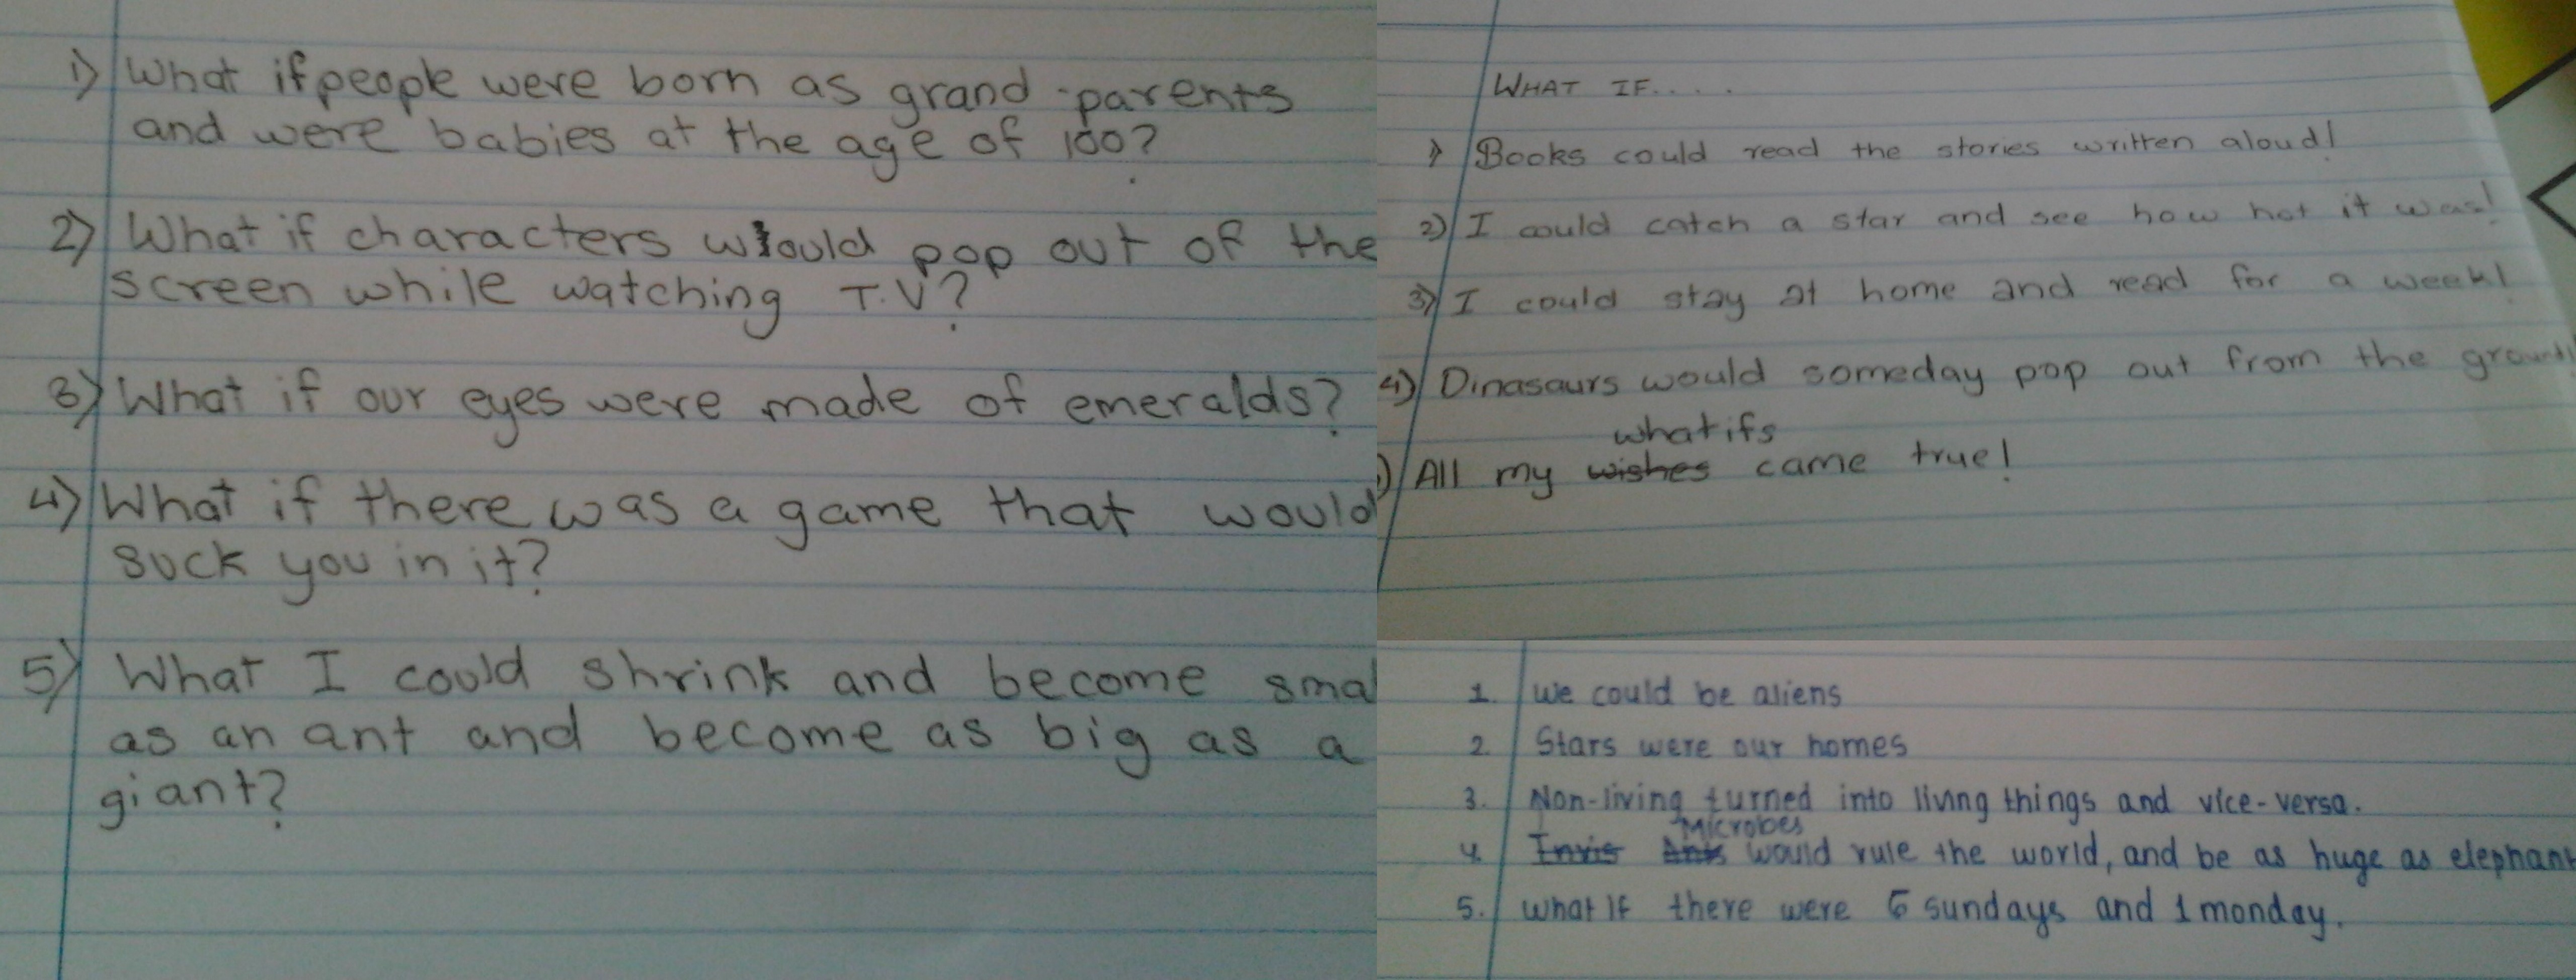 1) What if people were born as grand-parents
and were babies at the age of 100?
2) What if characters would pop out of the
screen while watching T.V?
3) What if our eyes were made of emeralds?
4) What if there was a game that would
suck you in it?
5) What I could shrink and become smal
as an ant and become as big as a
giant?
WHAT IF....
1) Books could read the stories written aloud!
2) I could catch a star and see how hot it was!
3) I could stay at home and read for a week!
4) Dinasaurs would someday pop out from the ground!
whatifs
) All my wishes came true!
1. We could be aliens
2. Stars were our homes
3. Non-living turned into living things and vice-versa.
Microbes
4. Invis Ants would rule the world, and be as huge as elephant
5. What If there were 6 sundays and 1 monday.